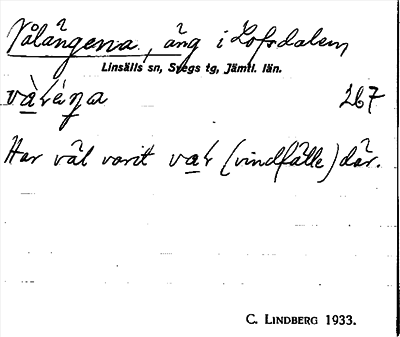 Vålängena, äng i Lofsdalen,
Linsälls sn, Svegs tg, Jämtl. län.
267
Har väl varit (vindfälle) där.
C. LINDBERG 1933.